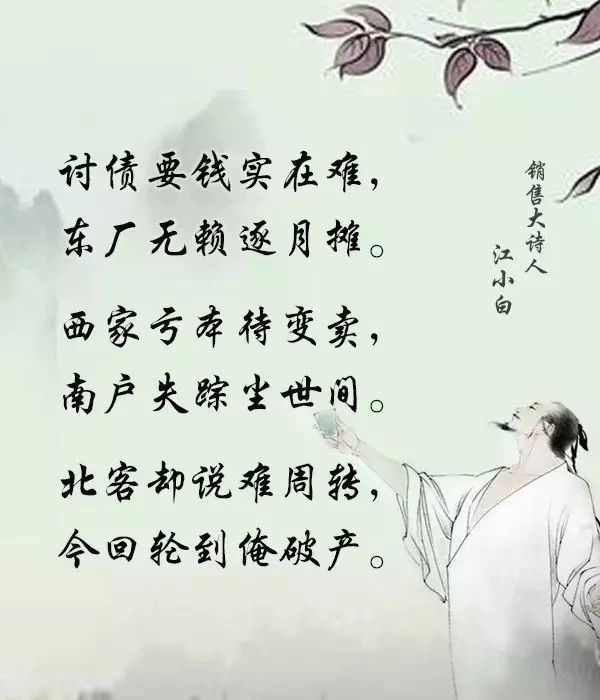 讨债要钱实在难，
东厂无赖逐月摊。
西家亏本待变卖，
南户失踪尘世间。
北客却说难周转，
今回轮到俺破产。
销售大诗人
江小白